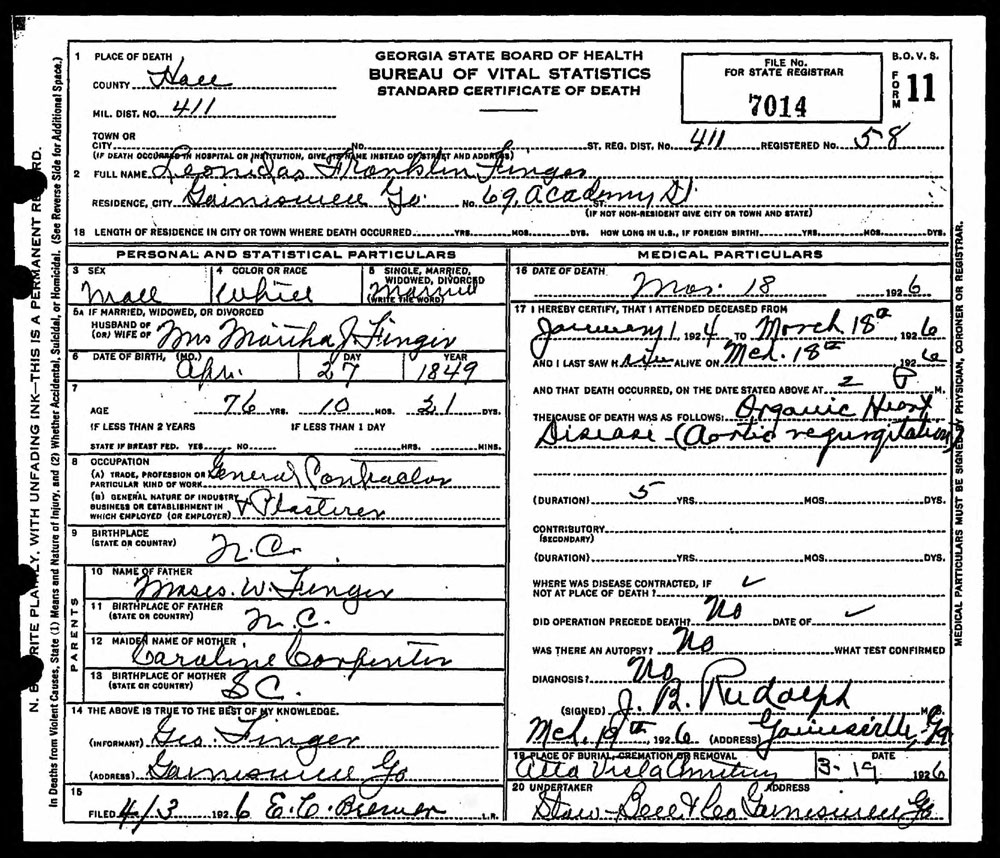 GEORGIA STATE BOARD OF HEALTH
BUREAU OF VITAL STATISTICS
STANDARD CERTIFICATE OF DEATH
FILE No.
FOR STATE REGISTRAR
7014
B.O.V.S.
FORM 11
1 PLACE OF DEATH
COUNTY Hall
MIL. DIST. NO. 411
TOWN OR
CITY No. ST. REG. DIST. No. 411 REGISTERED NO. 58
(IF DEATH OCCURRED IN HOSPITAL OR INSTITUTION, GIVE ITS NAME INSTEAD OF STREET AND ADDRESS)
2 FULL NAME Leonidas Franklin Finger
RESIDENCE, CITY Gainesville Ga. No. 69, Academy St. ST.
(IF NOT NON-RESIDENT GIVE CITY OR TOWN AND STATE)
18 LENGTH OF RESIDENCE IN CITY OR TOWN WHERE DEATH OCCURRED YRS. MOS. DYS. HOW LONG IN U.S., IF FOREIGN BIRTH? YRS. MOS. DYS.
PERSONAL AND STATISTICAL PARTICULARS
3 SEX
Male
4 COLOR OR RACE
White
5 SINGLE, MARRIED,
WIDOWED, DIVORCED
Married
(WRITE THE WORD)
5A IF MARRIED, WIDOWED, OR DIVORCED
HUSBAND OF
(OR) WIFE OF Mrs Martha J. Finger
6 DATE OF BIRTH, (MO.) DAY YEAR
Apr. 27 1849
7
AGE 76 YRS. 10 MOS. 21 DYS.
IF LESS THAN 2 YEARS IF LESS THAN 1 DAY
STATE IF BREAST FED. YES NO HRS. MINS.
8 OCCUPATION
(A) TRADE, PROFESSION OR
PARTICULAR KIND OF WORK General Contractor
(B) GENERAL NATURE OF INDUSTRY
BUSINESS OR ESTABLISHMENT IN
WHICH EMPLOYED (OR EMPLOYER) & Plasterer
9 BIRTHPLACE
(STATE OR COUNTRY) N.C.
PARENTS
10 NAME OF FATHER
Moses. W. Finger
11 BIRTHPLACE OF FATHER
(STATE OR COUNTRY) N.C.
12 MAIDEN NAME OF MOTHER
Caroline Carpenter
13 BIRTHPLACE OF MOTHER
(STATE OR COUNTRY) S.C.
14 THE ABOVE IS TRUE TO THE BEST OF MY KNOWLEDGE.
(INFORMANT) Geo. Finger
(ADDRESS) Gainesville Ga
15
FILED 4/3 1926 E. C. Brewer L.R.
MEDICAL PARTICULARS
16 DATE OF DEATH
Mar. 18 1926
17 I HEREBY CERTIFY, THAT I ATTENDED DECEASED FROM
January 1, 1924 TO March 18th, 1926
AND I LAST SAW Him ALIVE ON Mch. 18th, 1926
AND THAT DEATH OCCURRED, ON THE DATE STATED ABOVE AT 2 P M.
THE CAUSE OF DEATH WAS AS FOLLOWS: Organic Heart
Disease - (Aortic regurgitation)
(DURATION) 5 YRS. MOS. DYS.
CONTRIBUTORY
(SECONDARY)
(DURATION) YRS. MOS. DYS.
WHERE WAS DISEASE CONTRACTED, IF
NOT AT PLACE OF DEATH? ✓
DID OPERATION PRECEDE DEATH? No DATE OF ✓
WAS THERE AN AUTOPSY? No WHAT TEST CONFIRMED
DIAGNOSIS? No
(SIGNED) J. B. Rudolph M.D.
Mch. 19th, 1926 (ADDRESS) Gainesville, Ga
19 PLACE OF BURIAL, CREMATION OR REMOVAL DATE
Alta Vista Cemetery 3-19 1926
20 UNDERTAKER ADDRESS
Stow-Bell & Co Gainesville Ga
N. B. WRITE PLAINLY, WITH UNFADING INK—THIS IS A PERMANENT RECORD.
In Deaths from Violent Causes, State (1) Means and Nature of Injury, and (2) Whether Accidental, Suicidal, or Homicidal. (See Reverse Side for Additional Space.)
MEDICAL PARTICULARS MUST BE SIGNED BY PHYSICIAN, CORONER OR REGISTRAR.